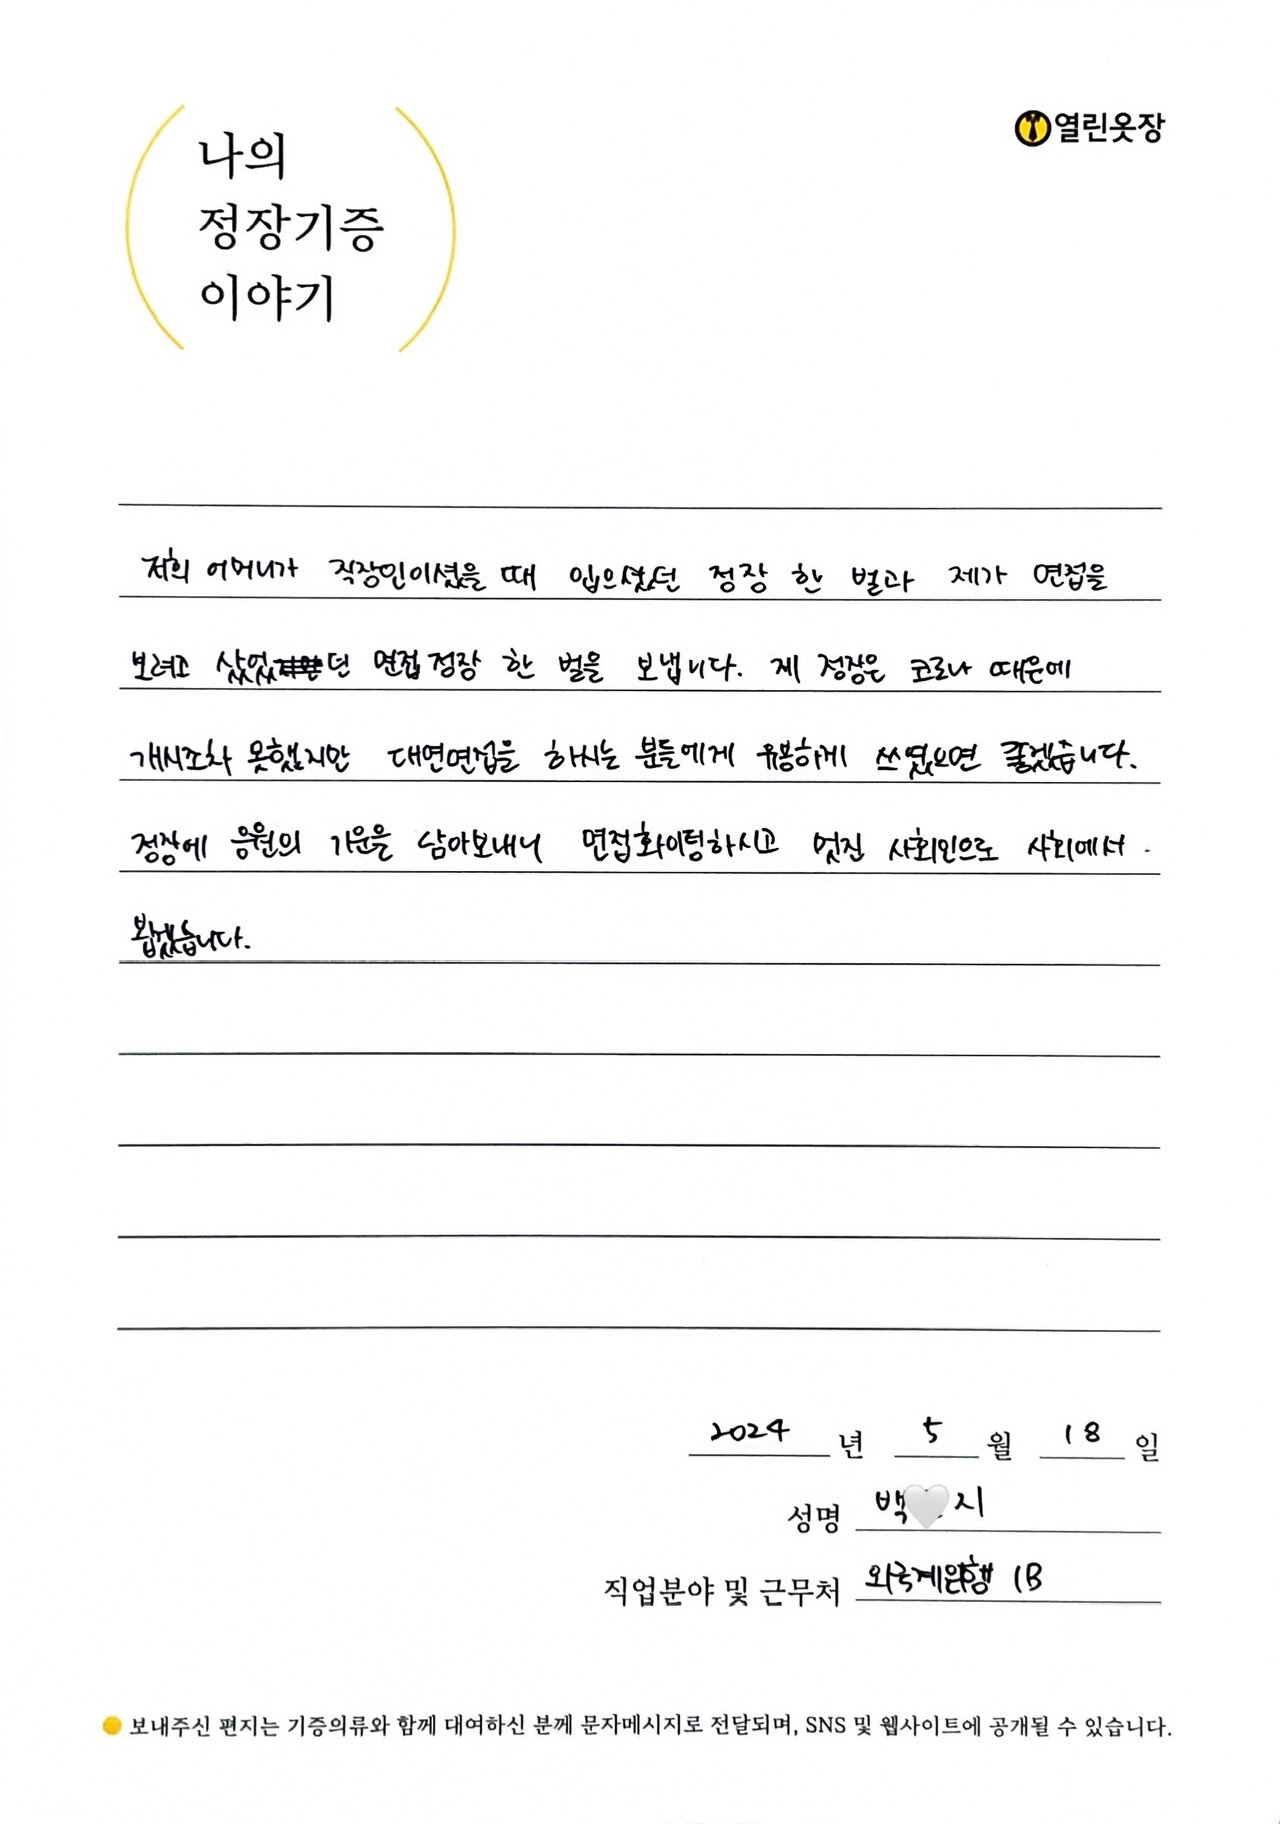 나의
정장기증
이야기
열린옷장
저희 어머니가 직장인이셨을 때 입으셨던 정장 한 벌과 제가 면접을
보려고 샀었던 면접 정장 한 벌을 보냅니다. 제 정장은 코로나 때문에
개시조차 못했지만 대면면접을 하시는 분들에게 유용하게 쓰였으면 좋겠습니다.
정장에 응원의 기운을 담아보내니 면접화이팅하시고 멋진 사회인으로 사회에서
뵙겠습니다.
2024 년 5 월 18 일
성명 백 지
직업분야 및 근무처 외국계은행 IB
보내주신 편지는 기증의류와 함께 대여하신 분께 문자메시지로 전달되며, SNS 및 웹사이트에 공개될 수 있습니다.